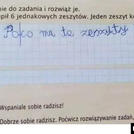 nie do zadania i rozwiąż je.
pił 6 jednakowych zeszytów. Jeden zeszyt k
Poko na te zeszyty
Wspaniale sobie radzisz!
Dobrze sobie radzisz. Poćwicz rozwiązywanie zadań